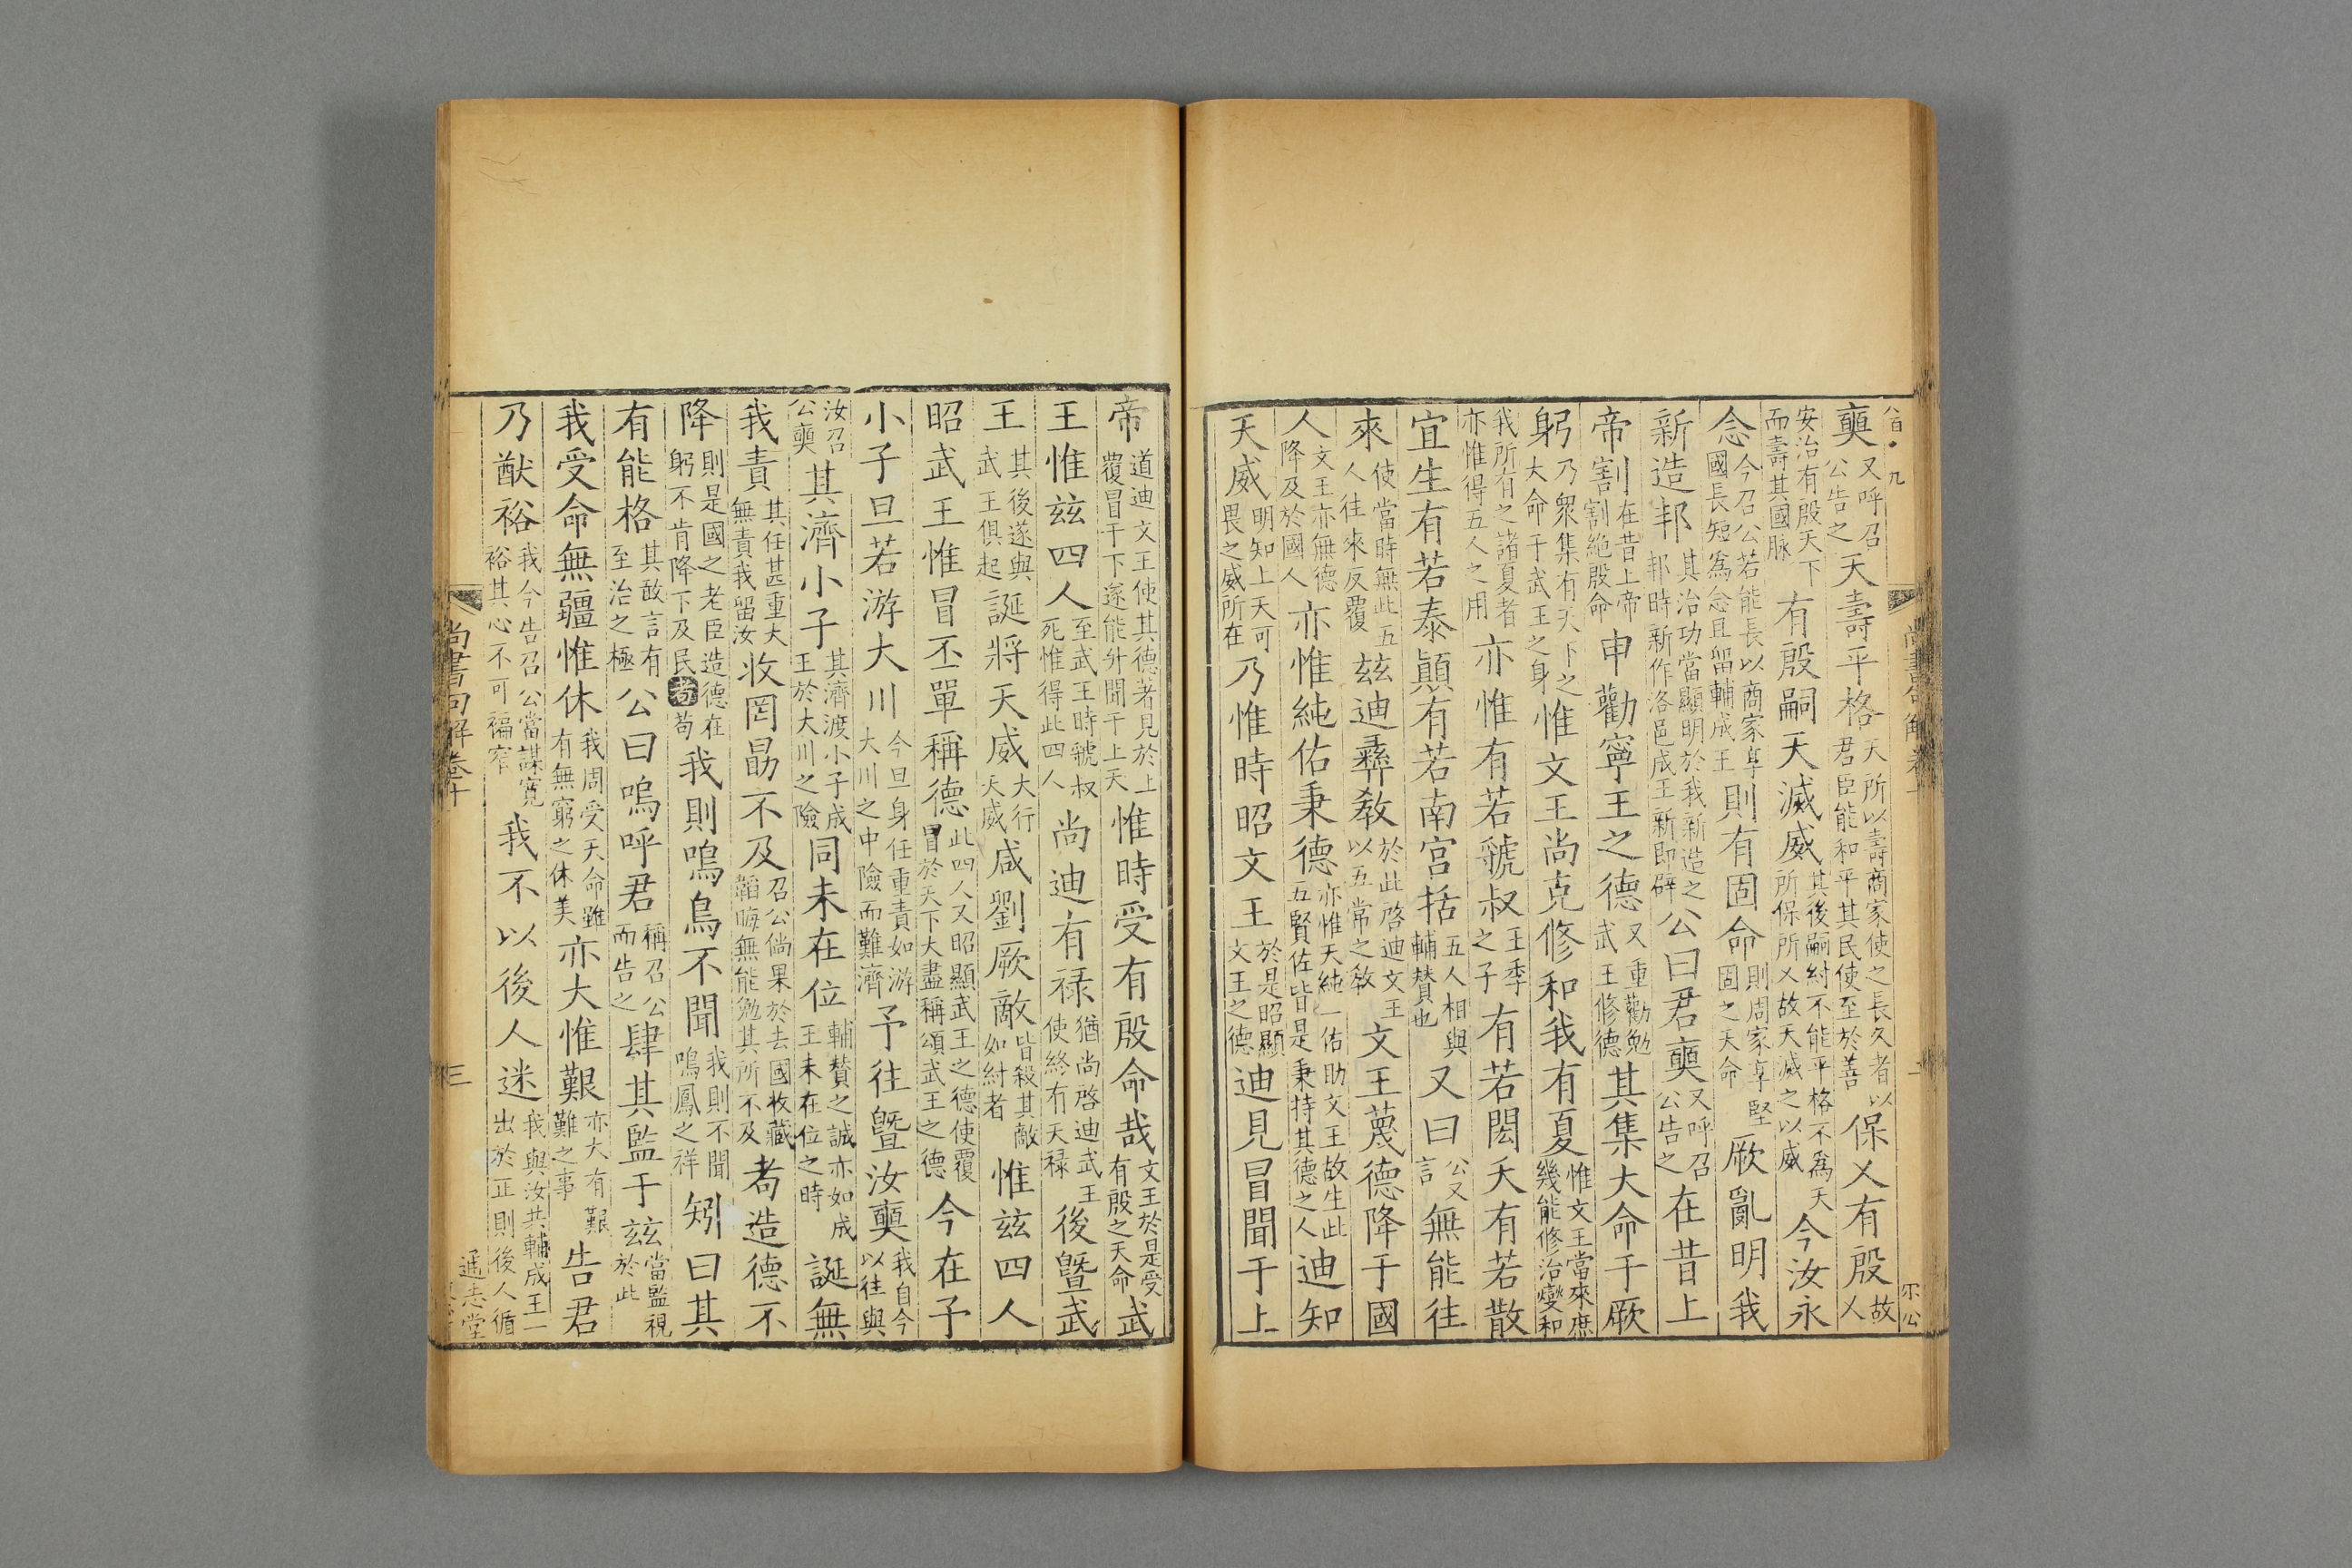 奭又呼召公告之天壽平格天所以壽商家使之長久者以君臣能和平其民使至於善保乂有殷故人
安治有殷天下而壽其國脉有殷嗣天滅威其後嗣紂不能平格不爲天所保所乂故天滅之以威今汝永
念今召公若能長以商家享國長短爲念且留輔成王則有固命則周家享堅固之天命厥亂明我
新造邦其治功當顯明於我新造之邦時新作洛邑成王新即辟公曰君奭又呼召公告之在昔上
帝割在昔上帝割絶殷命申勸寧王之德又重勸勉武王修德其集大命于厥
躬乃衆集有天下之大命于武王之身惟文王尚克修和我有夏惟文王當來庶幾能修治變和
我所有之諸夏者亦惟得五人之用亦惟有若虢叔王季之子有若閎夭有若散
宜生有若泰顚有若南宮括五人相與輔賛也又曰公又言無能往
來使當時無此五人往來反覆茲迪彝敎於此啓迪文王以五常之敎文王蔑德降于國
人文王亦無德降及於國人亦惟純佑秉德亦惟天純一佑助文王故生此五賢佐皆是秉持其德之人迪知
天威明知上天可畏之威所在乃惟時昭文王於是昭顯文王之德迪見冒聞于上
帝道迪文王使其德著見於上覆冒于下遂能升聞于上天惟時受有殷命哉文王於是受有殷之天命武
王惟茲四人至武王時虢叔死惟得此四人尚迪有禄猶尚啓迪武王使終有天禄後曁武
王其後遂與武王俱起誕將天威大行天威咸劉厥敵皆殺其敵如紂者惟茲四人
昭武王惟冒丕單稱德此四人又昭顯武王之德使覆冒於天下大盡稱頌武王之德今在予
小子旦若游大川今旦身任重責如游大川之中險而難濟予往曁汝奭我自今以往與
汝召公奭其濟小子其濟渡小子成王於大川之險同未在位輔賛之誠亦如成王未在位之時誕無
我責其任甚重大無責我留汝收罔勗不及召公倘果於去國收藏韜晦無能勉其所不及耇造德不
降則是國之老臣造德在躬不肯降下及民耇苟我則鳴鳥不聞我則不聞鳴鳳之祥矧曰其
有能格其敢言有至治之極公曰嗚呼君稱召公而告之肆其監于茲當監視於此
我受命無疆惟休我周受天命雖有無窮之休美亦大惟艱亦大有艱難之事告君
乃猷裕我今告召公當謀寛裕其心不可褊窄我不以後人迷我與汝共輔成王一出於正則後人循
尚書句解卷十
三
通志堂